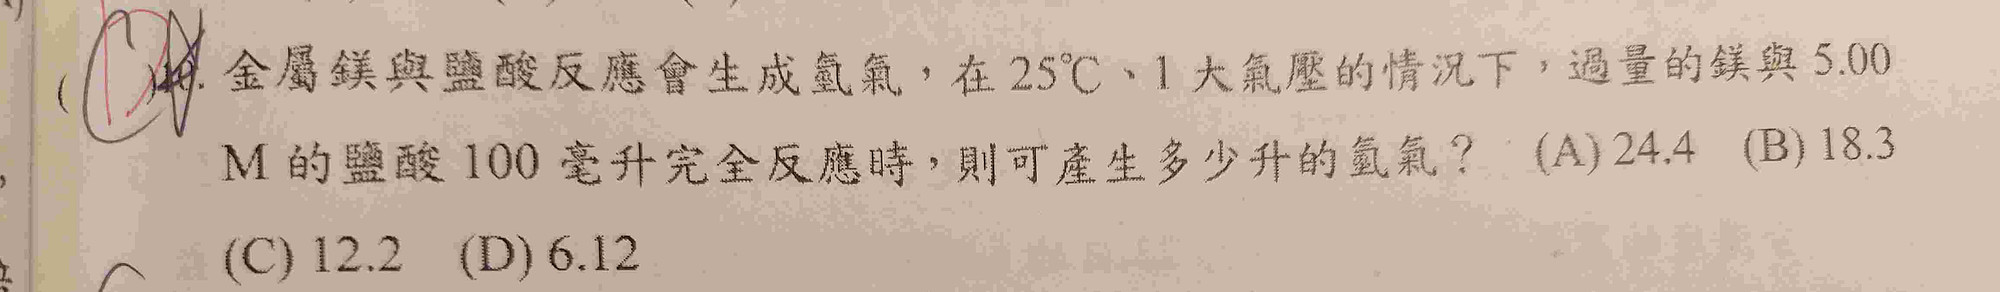 ( )18. 金屬鎂與鹽酸反應會生成氫氣，在 25℃、1 大氣壓的情況下，過量的鎂與 5.00
M 的鹽酸 100 毫升完全反應時，則可產生多少升的氫氣？ (A) 24.4 (B) 18.3
(C) 12.2 (D) 6.12